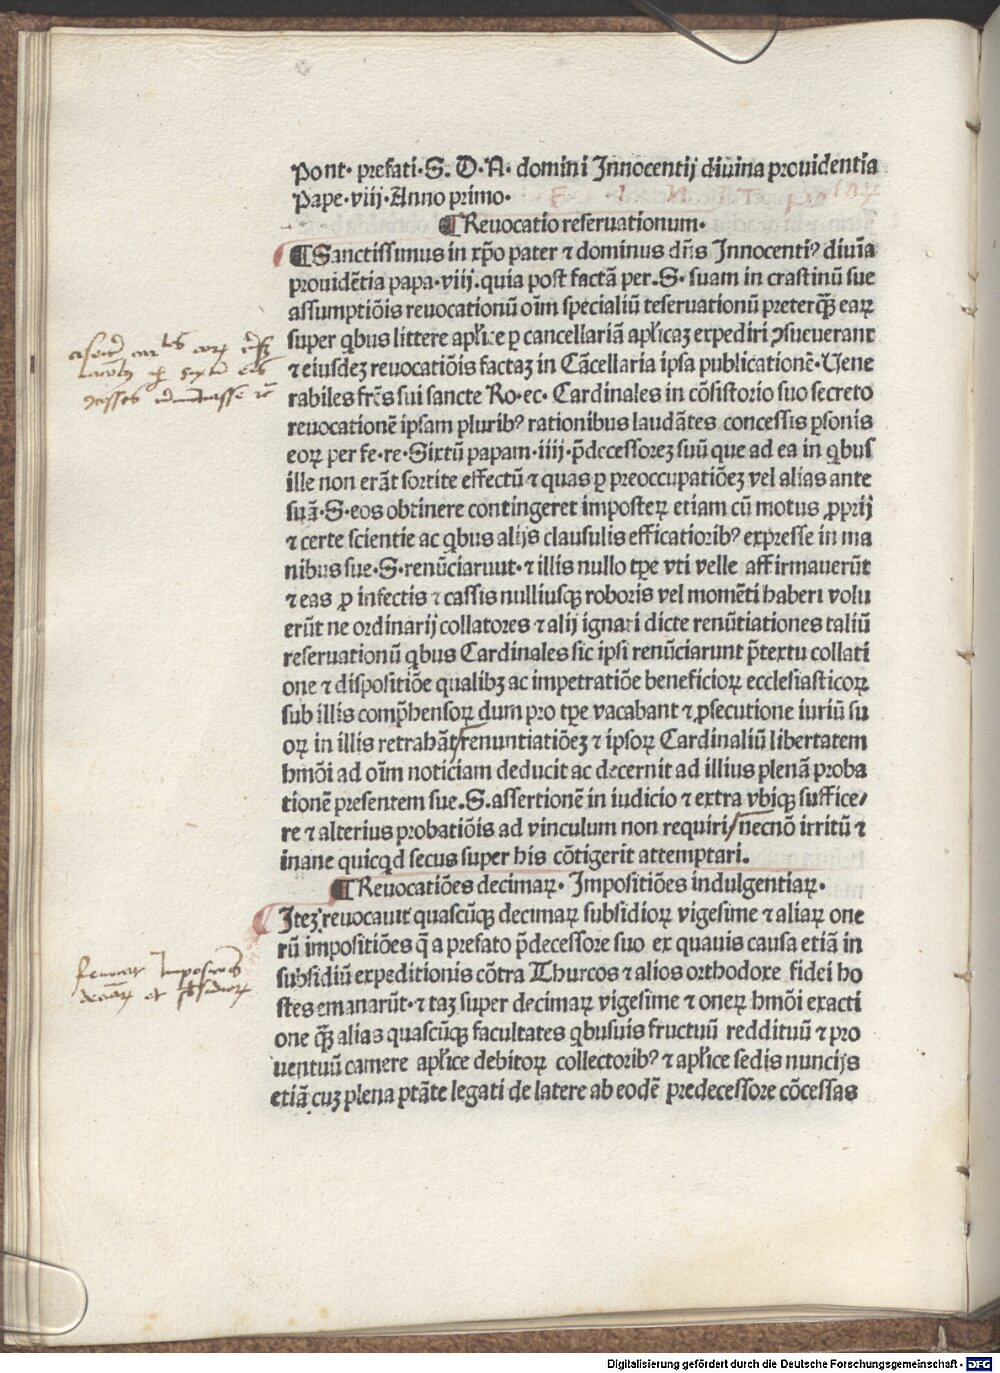 Pont· prefati·S. D·N· domini Innocentij diuina prouidentia
Pape·viij·Anno primo·
¶Reuocatio reseruationum·
¶Sanctissimus in xp̄o pater ⁊ dominus dn̄s Innocentiꝰ diuīa
prouidētia papa·viij·quia post factā per·S·suam in crastinū sue
assumptiōis reuocationū oīm specialiū teseruationū preterqȝ̄ earꝝ
super qbus littere apl̄ice ꝑ cancellariā apl̄icaȝ expediri ꝯsueuerant
⁊ eiusdeȝ reuocatiōis factaȝ in Cācellaria ipsa publicationē·Vene
rabiles frēs sui sancte Ro·ec·Cardinales in cōsistorio suo secreto
reuocationē ipsam pluribꝰ rationibus laudātes concessis ꝑsonis
eorꝝ per fe·re·Sixtū papam·iiij·p̄decessoreȝ suū que ad ea in qbus
ille non erāt sortite effectū ⁊ quas ꝑ preoccupatiōeȝ vel alias ante
suā·S·eos obtinere contingeret imposterꝝ etiam cū motus ꝓprij
⁊ certe scientie ac qbus alijs clausulis efficatioribꝰ expresse in ma
nibus sue·S·renūciaruut·⁊ illis nullo tꝑe vti velle affirmauerūt
⁊ eas ꝓ infectis ⁊ cassis nulliusqȝ roboris vel momēti haberi volu
erūt ne ordinarij collatores ⁊ alij ignari dicte renūtiationes taliū
reseruationū qbus Cardinales sic ipsi renūciarunt p̄textu collati
one ⁊ dispositiōe qualibȝ ac impetratiōe beneficiorꝝ ecclesiasticorꝝ
sub illis comp̄hensorꝝ dum pro tꝑe vacabant ⁊ ꝓsecutione iuriū su
orꝝ in illis retrahāt/renuntiatiōeȝ ⁊ ipsorꝝ Cardinaliū libertatem
hmōi ad oīm noticiam deducit ac decernit ad illius plenā proba
tionē presentem sue.S.assertionē in iudicio ⁊ extra vbiqȝ suffice/
re ⁊ alterius probatiōis ad vinculum non requiri/necnō irritū ⁊
inane quicqd secus super his cōtigerit attemptari.
¶Reuocatiōes decimaꝝ· Impositiōes indulgentiaꝝ·
Iteȝ reuocauit quascūqȝ decimaꝝ subsidiorꝝ vigesime ⁊ aliaꝝ one
rū impositiōes q̄ a prefato p̄decessore suo ex quauis causa etiā in
subsidiū expeditionis cōtra Thurcos ⁊ alios orthodoxe fidei ho
stes emanarūt·⁊ taȝ super decimaꝝ vigesime ⁊ onerꝝ hmōi exacti
one qȝ̄ alias quascūqȝ facultates qbusuis fructuū reddituū ⁊ pro
uentuū camere apl̄ice debitorꝝ collectoribꝰ ⁊ apl̄ice sedis nuncijs
etiā cuȝ plena ptāte legati de latere ab eodē predecessore cōcessas
Digitalisierung gefördert durch die Deutsche Forschungsgemeinschaft · DFG